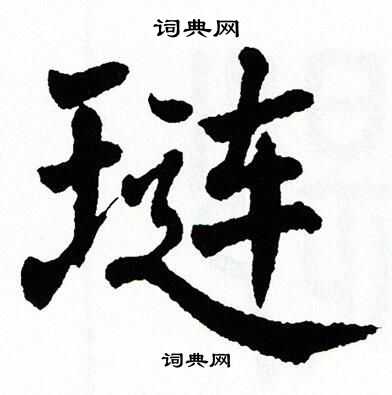 词典网
琏
词典网